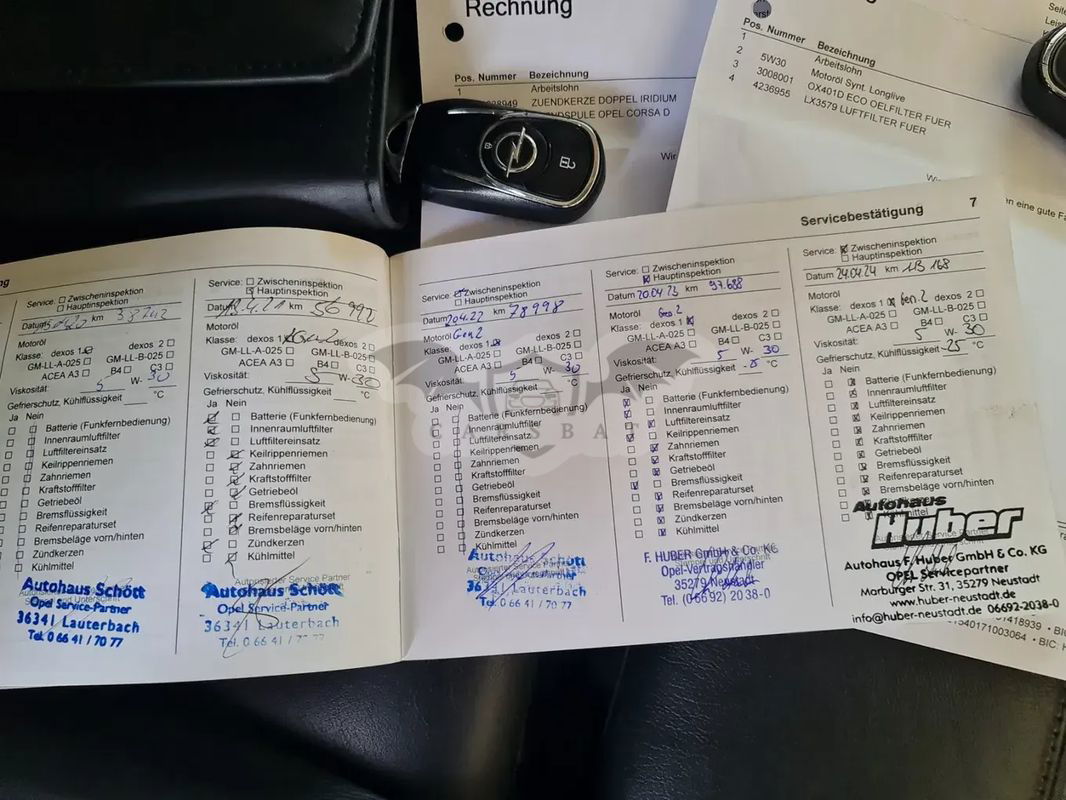 Rechnung
Pos. Nummer Bezeichnung
1 Arbeitslohn
ZUENDKERZE DOPPEL IRIDIUM
OPEL CORSA D
Wir
Pos. Nummer Bezeichnung
1 Arbeitslohn
2 5W30 Motoröl Synt. Longlive
3 3008001 OX401D ECO OELFILTER FUER
4 4236955 LX3579 LUFTFILTER FUER
Seite
en eine gute Fa
Servicebestätigung 7
Service: Zwischeninspektion
Hauptinspektion
Datum km 38
Motoröl
Klasse: dexos 1 dexos 2
GM-LL-A-025 GM-LL-B-025
ACEA A3 B4 C3
Viskosität: 5 W- 30
Gefrierschutz, Kühlflüssigkeit °C
Ja Nein
Batterie (Funkfernbedienung)
Innenraumluftfilter
Luftfiltereinsatz
Keilrippenriemen
Zahnriemen
Kraftstofffilter
Getriebeöl
Bremsflüssigkeit
Reifenreparaturset
Bremsbeläge vorn/hinten
Zündkerzen
Kühlmittel
Autohaus Schött
Opel Service-Partner
36341 Lauterbach
Tel. 0 66 41 / 70 77
Service: Zwischeninspektion
Hauptinspektion
Datum 13.4.21 km 56 992
Motoröl
Klasse: dexos 1 Gen2 dexos 2
GM-LL-A-025 GM-LL-B-025
ACEA A3 B4 C3
Viskosität: 5 W- 30
Gefrierschutz, Kühlflüssigkeit °C
Ja Nein
Batterie (Funkfernbedienung)
Innenraumluftfilter
Luftfiltereinsatz
Keilrippenriemen
Zahnriemen
Kraftstofffilter
Getriebeöl
Bremsflüssigkeit
Reifenreparaturset
Bremsbeläge vorn/hinten
Zündkerzen
Kühlmittel
Autorisierter Service Partner
Autohaus Schött
Opel Service-Partner
36341 Lauterbach
Tel. 0 66 41 / 70 77
Service: Zwischeninspektion
Hauptinspektion
Datum 20.4.22 km 78998
Motoröl Gen2
Klasse: dexos 1 dexos 2
GM-LL-A-025 GM-LL-B-025
ACEA A3 B4 C3
Viskosität: 5 W- 30
Gefrierschutz, Kühlflüssigkeit °C
Ja Nein
Batterie (Funkfernbedienung)
Innenraumluftfilter
Luftfiltereinsatz
Keilrippenriemen
Zahnriemen
Kraftstofffilter
Getriebeöl
Bremsflüssigkeit
Reifenreparaturset
Bremsbeläge vorn/hinten
Zündkerzen
Kühlmittel
Autohaus Schött
36341 Lauterbach
Tel. 0 66 41 / 70 77
Service: Zwischeninspektion
Hauptinspektion
Datum 20.04.23 km 97.688
Motoröl Gen 2
Klasse: dexos 1 dexos 2
GM-LL-A-025 GM-LL-B-025
ACEA A3 B4 C3
Viskosität: 5 W- 30
Gefrierschutz, Kühlflüssigkeit -25 °C
Ja Nein
Batterie (Funkfernbedienung)
Innenraumluftfilter
Luftfiltereinsatz
Keilrippenriemen
Zahnriemen
Kraftstofffilter
Getriebeöl
Bremsflüssigkeit
Reifenreparaturset
Bremsbeläge vorn/hinten
Zündkerzen
Kühlmittel
F. HUBER GmbH & Co. KG
Opel-Vertragshändler
35279 Neustadt
Tel. (0 66 92) 20 38-0
Service: Zwischeninspektion
Hauptinspektion
Datum 24.04.24 km 113 168
Motoröl
Klasse: dexos 1 Gen 2 dexos 2
GM-LL-A-025 GM-LL-B-025
ACEA A3 B4 C3
Viskosität: 5 W- 30
Gefrierschutz, Kühlflüssigkeit -25 °C
Ja Nein
Batterie (Funkfernbedienung)
Innenraumluftfilter
Luftfiltereinsatz
Keilrippenriemen
Zahnriemen
Kraftstofffilter
Getriebeöl
Bremsflüssigkeit
Reifenreparaturset
Bremsbeläge vorn/hinten
Kühlmittel
Autohaus
Huber
Autohaus F. Huber GmbH & Co. KG
OPEL Servicepartner
Marburger Str. 31, 35279 Neustadt
www.huber-neustadt.de
info@huber-neustadt.de 06692-2038-0
CARSBAT